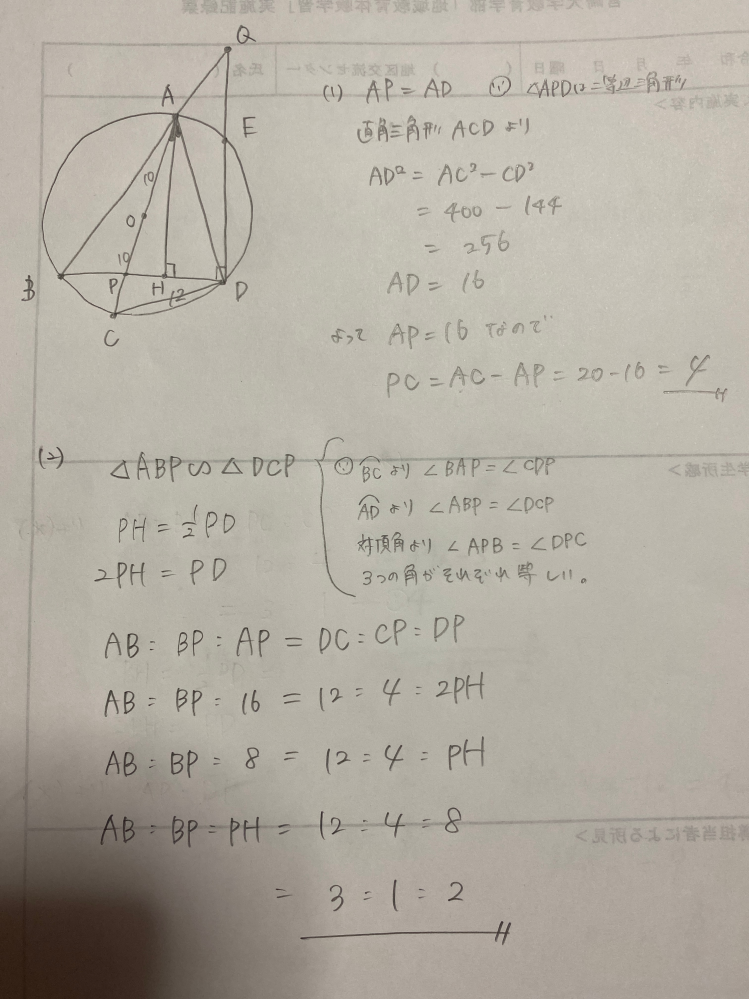 Q
A
E
10
O
10
B
P
H
D
12
C
(1) AP = AD ∵ △APDは二等辺三角形
直角三角形 ACD より
AD² = AC² - CD²
= 400 - 144
= 256
AD = 16
よって AP = 16 なので
PC = AC - AP = 20 - 16 = 4
(2) △ABP∽△DCP
∵ BC より ∠BAP = ∠CDP
AD より ∠ABP = ∠DCP
対頂角より ∠APB = ∠DPC
3つの角がそれぞれ等しい。
PH = 1/2 PD
2PH = PD
AB : BP : AP = DC : CP : DP
AB : BP : 16 = 12 : 4 : 2PH
AB : BP : 8 = 12 : 4 : PH
AB : BP : PH = 12 : 4 : 8
= 3 : 1 : 2